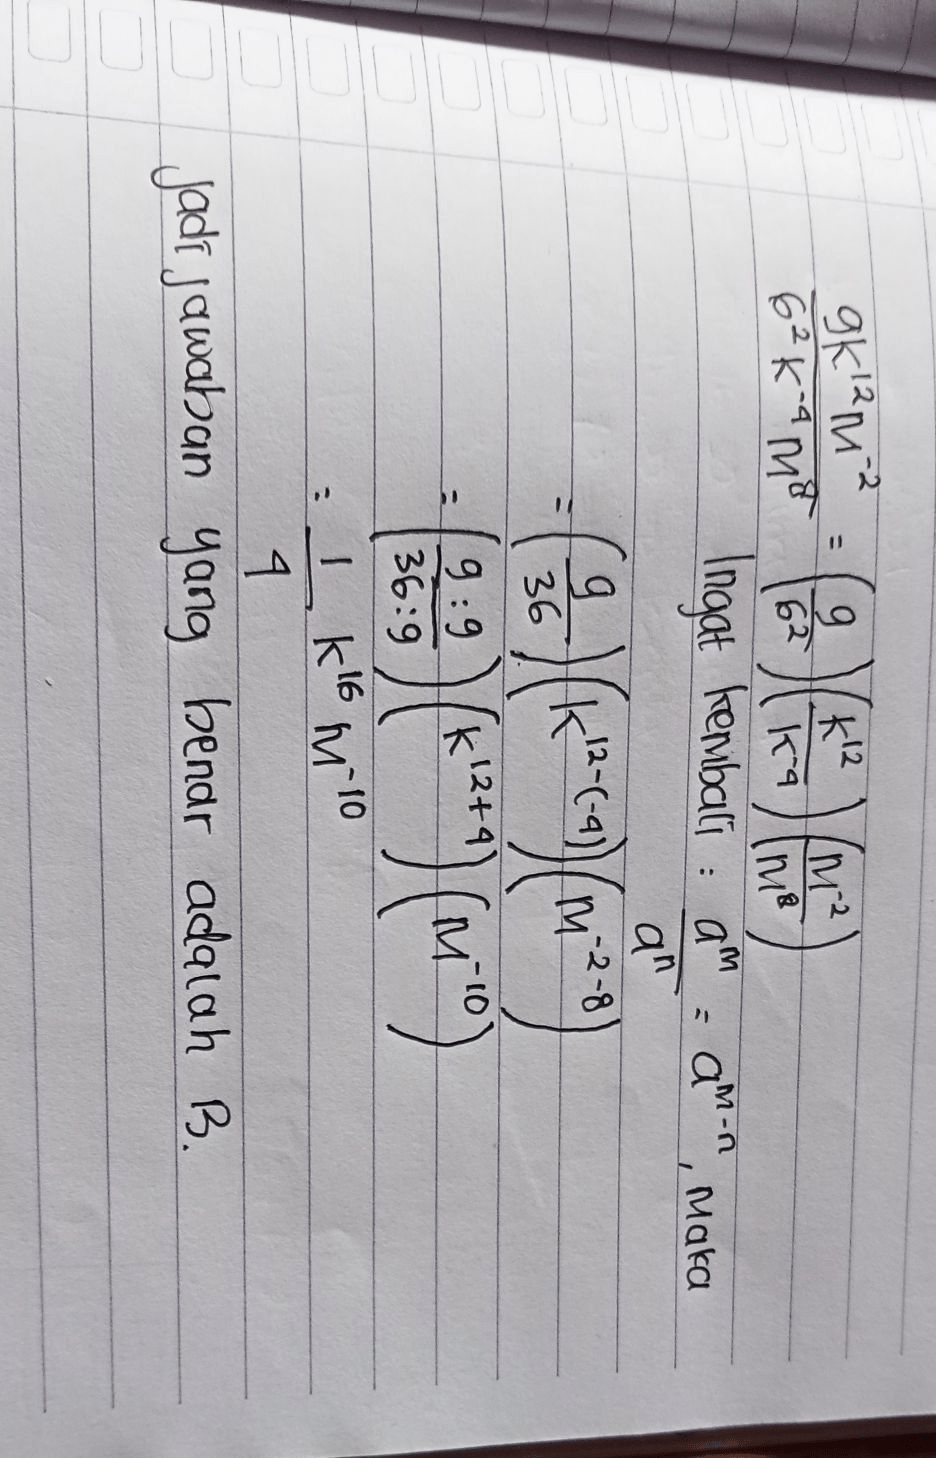 9k¹²m⁻² / 6²k⁻⁴m⁸ = (9/6²)(k¹²/k⁻⁴)(m⁻²/m⁸)
Ingat kembali : aᵐ/aⁿ = aᵐ⁻ⁿ, maka
= (9/36)(k¹²⁻⁽⁻⁴⁾)(m⁻²⁻⁸)
= (9:9/36:9)(k¹²⁺⁴)(m⁻¹⁰)
= 1/4 k¹⁶ m⁻¹⁰
Jadi jawaban yang benar adalah B.